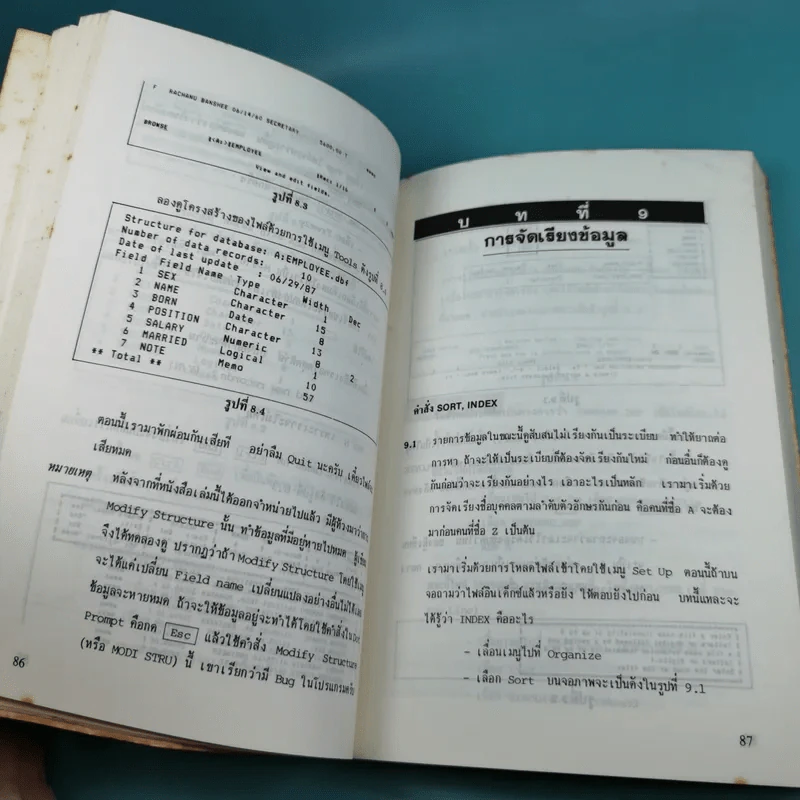 F RACHANU BANSHEE 06/14/60 SECRETARY 5600.00 T
BROWSE
View and edit fields.
รูปที่ 8.3
ลองดูโครงสร้างของไฟล์ด้วยการใช้เมนู Tools ดังรูปที่ 8.4
Structure for database: A:EMPLOYEE.dbf
Number of data records: 10
Date of last update : 06/29/87
Field Field Name Type Width Dec
1 SEX Character 1
2 NAME Character 15
3 BORN Date 8
4 POSITION Character 13
5 SALARY Numeric 8 2
6 MARRIED Logical 1
7 NOTE Memo 10
** Total ** 57
รูปที่ 8.4
ตอนนี้เรามาพักผ่อนกันเสียที อย่าลืม Quit นะครับ เดี๋ยวไฟล์จะ
เสียหมด
หมายเหตุ หลังจากที่หนังสือเล่มนี้ได้ออกจำหน่ายไปแล้ว มีผู้ท้วงมาว่าการ
Modify Structure นั้น ทำข้อมูลที่มีอยู่หายไปหมด ผู้เขียน
จึงได้ทดลองดู ปรากฏว่าถ้า Modify Structure โดยใช้เมนู
จะได้แค่เปลี่ยน Field name เปลี่ยนแปลงอย่างอื่นไม่ได้เลย
ข้อมูลจะหายหมด ถ้าจะให้ข้อมูลอยู่จะทำได้โดยใช้คำสั่งใน Dot
Prompt คือกด Esc แล้วใช้คำสั่ง Modify Structure
(หรือ MODI STRU) นี้ เขาเรียกว่ามี Bug ในโปรแกรมครับ
86
บทที่ 9
การจัดเรียงข้อมูล
คำสั่ง SORT, INDEX
9.1 รายการข้อมูลในขณะนี้ดูสับสนไม่เรียงกันเป็นระเบียบ ทำให้ยากต่อ
การหา ถ้าจะให้เป็นระเบียบก็ต้องจัดเรียงกันใหม่ ก่อนอื่นก็ต้องดู
กันก่อนว่าจะเรียงกันอย่างไร เอาอะไรเป็นหลัก เรามาเริ่มด้วย
การจัดเรียงชื่อบุคคลตามลำดับตัวอักษรกันก่อน คือคนที่ชื่อ A จะต้อง
มาก่อนคนที่ชื่อ Z เป็นต้น
เรามาเริ่มด้วยการโหลดไฟล์เข้าโดยใช้เมนู Set Up ตอนนี้ถ้าบน
จอถามว่าไฟล์อินเด็กซ์แล้วหรือยัง ให้ตอบยังไปก่อน บทนี้แหละจะ
ได้รู้ว่า INDEX คืออะไร
- เลื่อนเมนูไปที่ Organize
- เลือก Sort บนจอภาพจะเป็นดังในรูปที่ 9.1
87